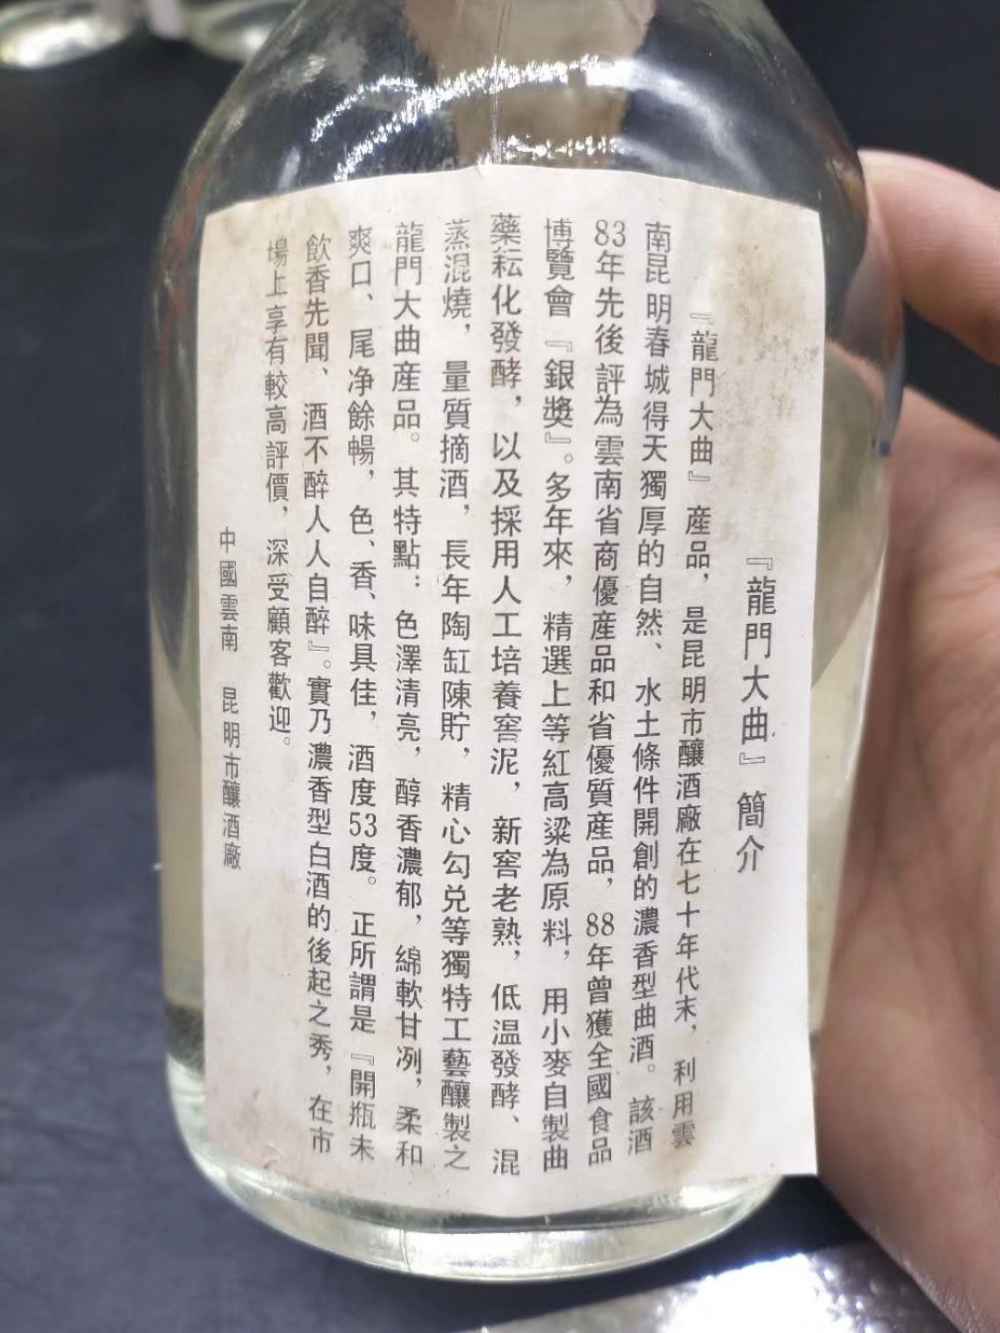 『龍門大曲』簡介
『龍門大曲』產品，是昆明市釀酒廠在七十年代末，利用雲
南昆明春城得天獨厚的自然、水土條件開創的濃香型曲酒。該酒
83年先後評為雲南省商優產品和省優質產品，88年曾獲全國食品
博覽會『銀獎』。多年來，精選上等紅高粱為原料，用小麥自製曲
藥耘化發酵，以及採用人工培養窖泥，新窖老熟，低溫發酵、混
蒸混燒，量質摘酒，長年陶缸陳貯，精心勾兑等獨特工藝釀製之
龍門大曲產品。其特點：色澤清亮，醇香濃郁，綿軟甘冽，柔和
爽口、尾净餘暢，色、香、味具佳，酒度53度。正所謂是『開瓶未
飲香先聞、酒不醉人人自醉』。實乃濃香型白酒的後起之秀，在市
場上享有較高評價，深受顧客歡迎。
中國雲南 昆明市釀酒廠